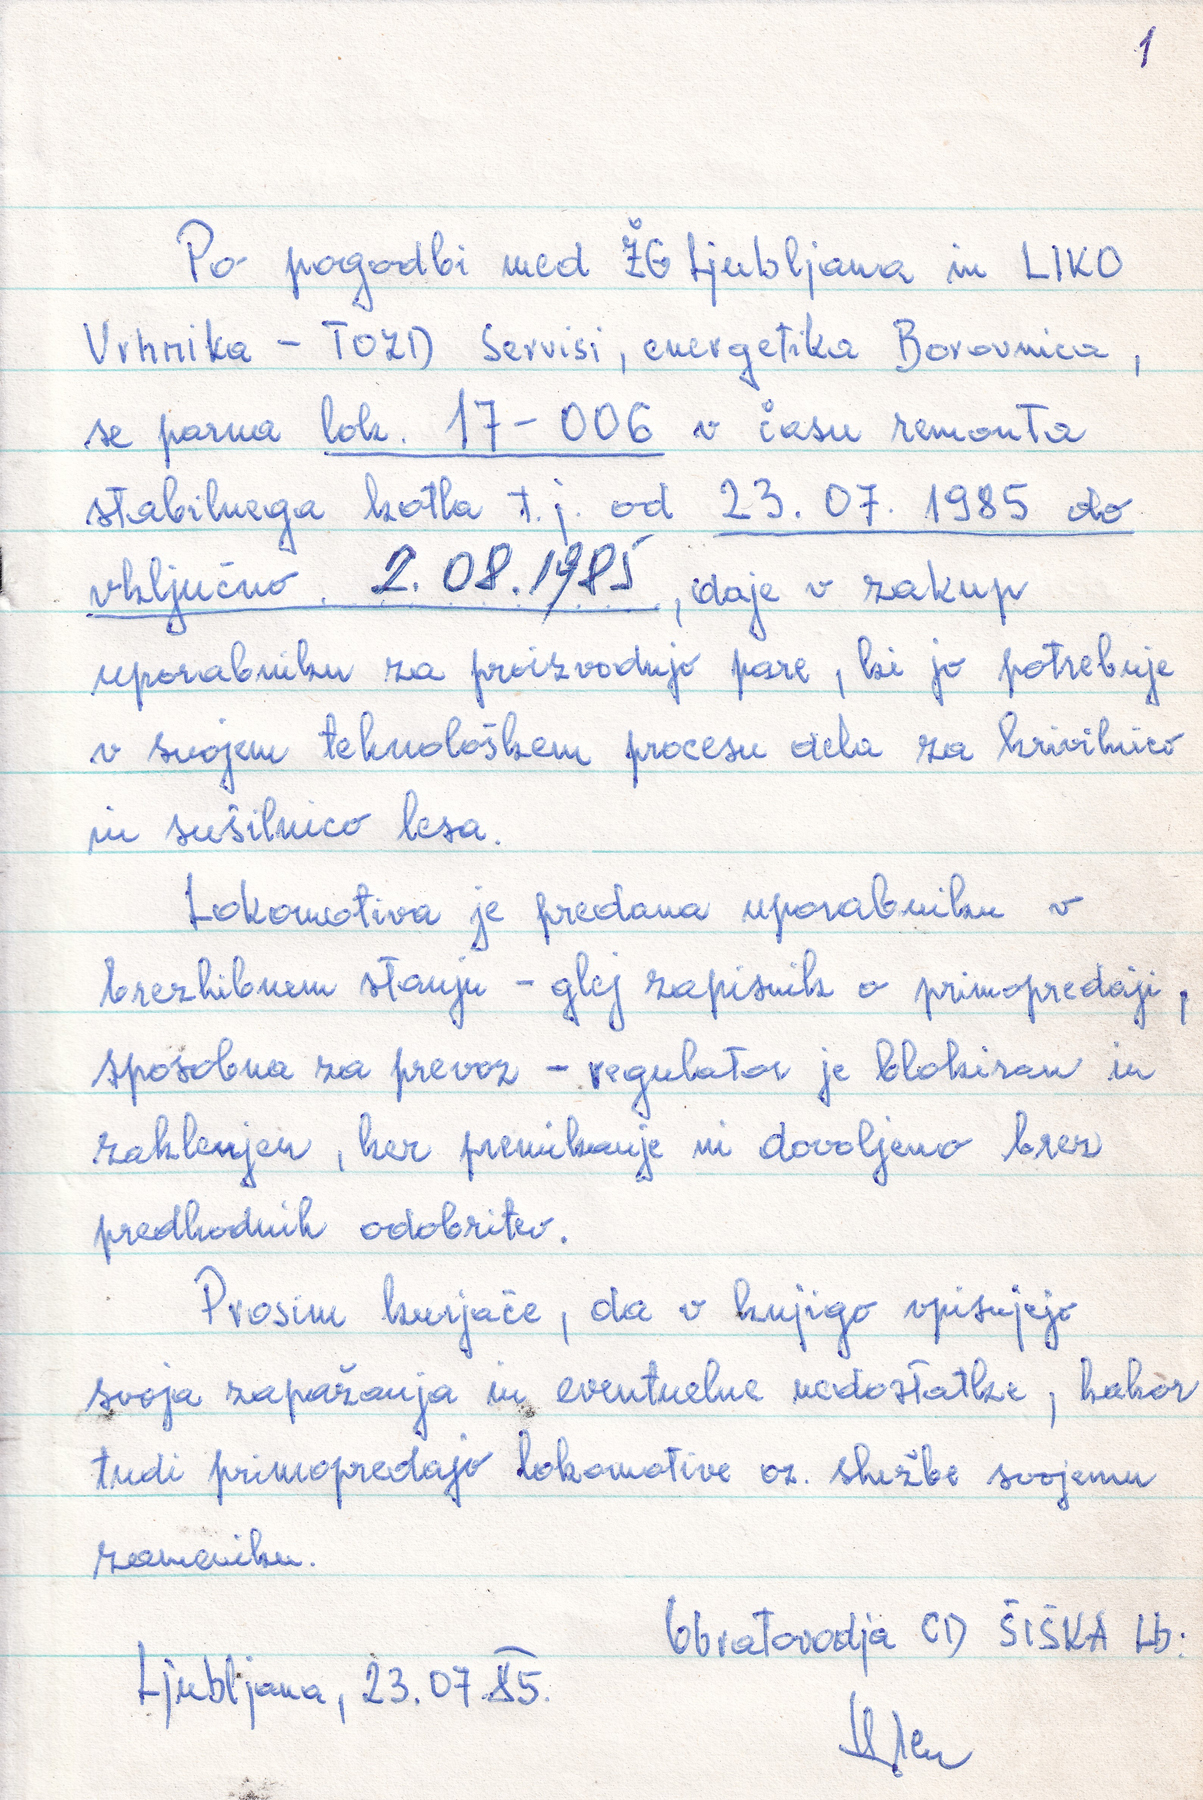 1
Po pogodbi med ŽG Ljubljana in LIKO
Vrhnika – TOZD Servisi, energetika Borovnica,
se parna lok. 17-006 v času remonta
stabilnega kotla t.j. od 23.07.1985 do
vključno 2.08.1985, daje v zakup
uporabniku za proizvodnjo pare, ki jo potrebuje
v svojem tehnološkem procesu dela za krivilnico
in sušilnico lesa.
Lokomotiva je predana uporabniku v
brezhibnem stanju – glej zapisnik o primopredaji,
sposobna za prevoz – regulator je blokiran in
zaklenjen, ker premikanje ni dovoljeno brez
predhodnih odobritev.
Prosim kurjače, da v knjigo vpisujejo
svoja zapažanja in eventuelne nedostatke, kakor
tudi primopredajo lokomotive oz. službe svojemu
zameniku.
Obratovodja CD ŠIŠKA Lb:
Ljubljana, 23.07.85.